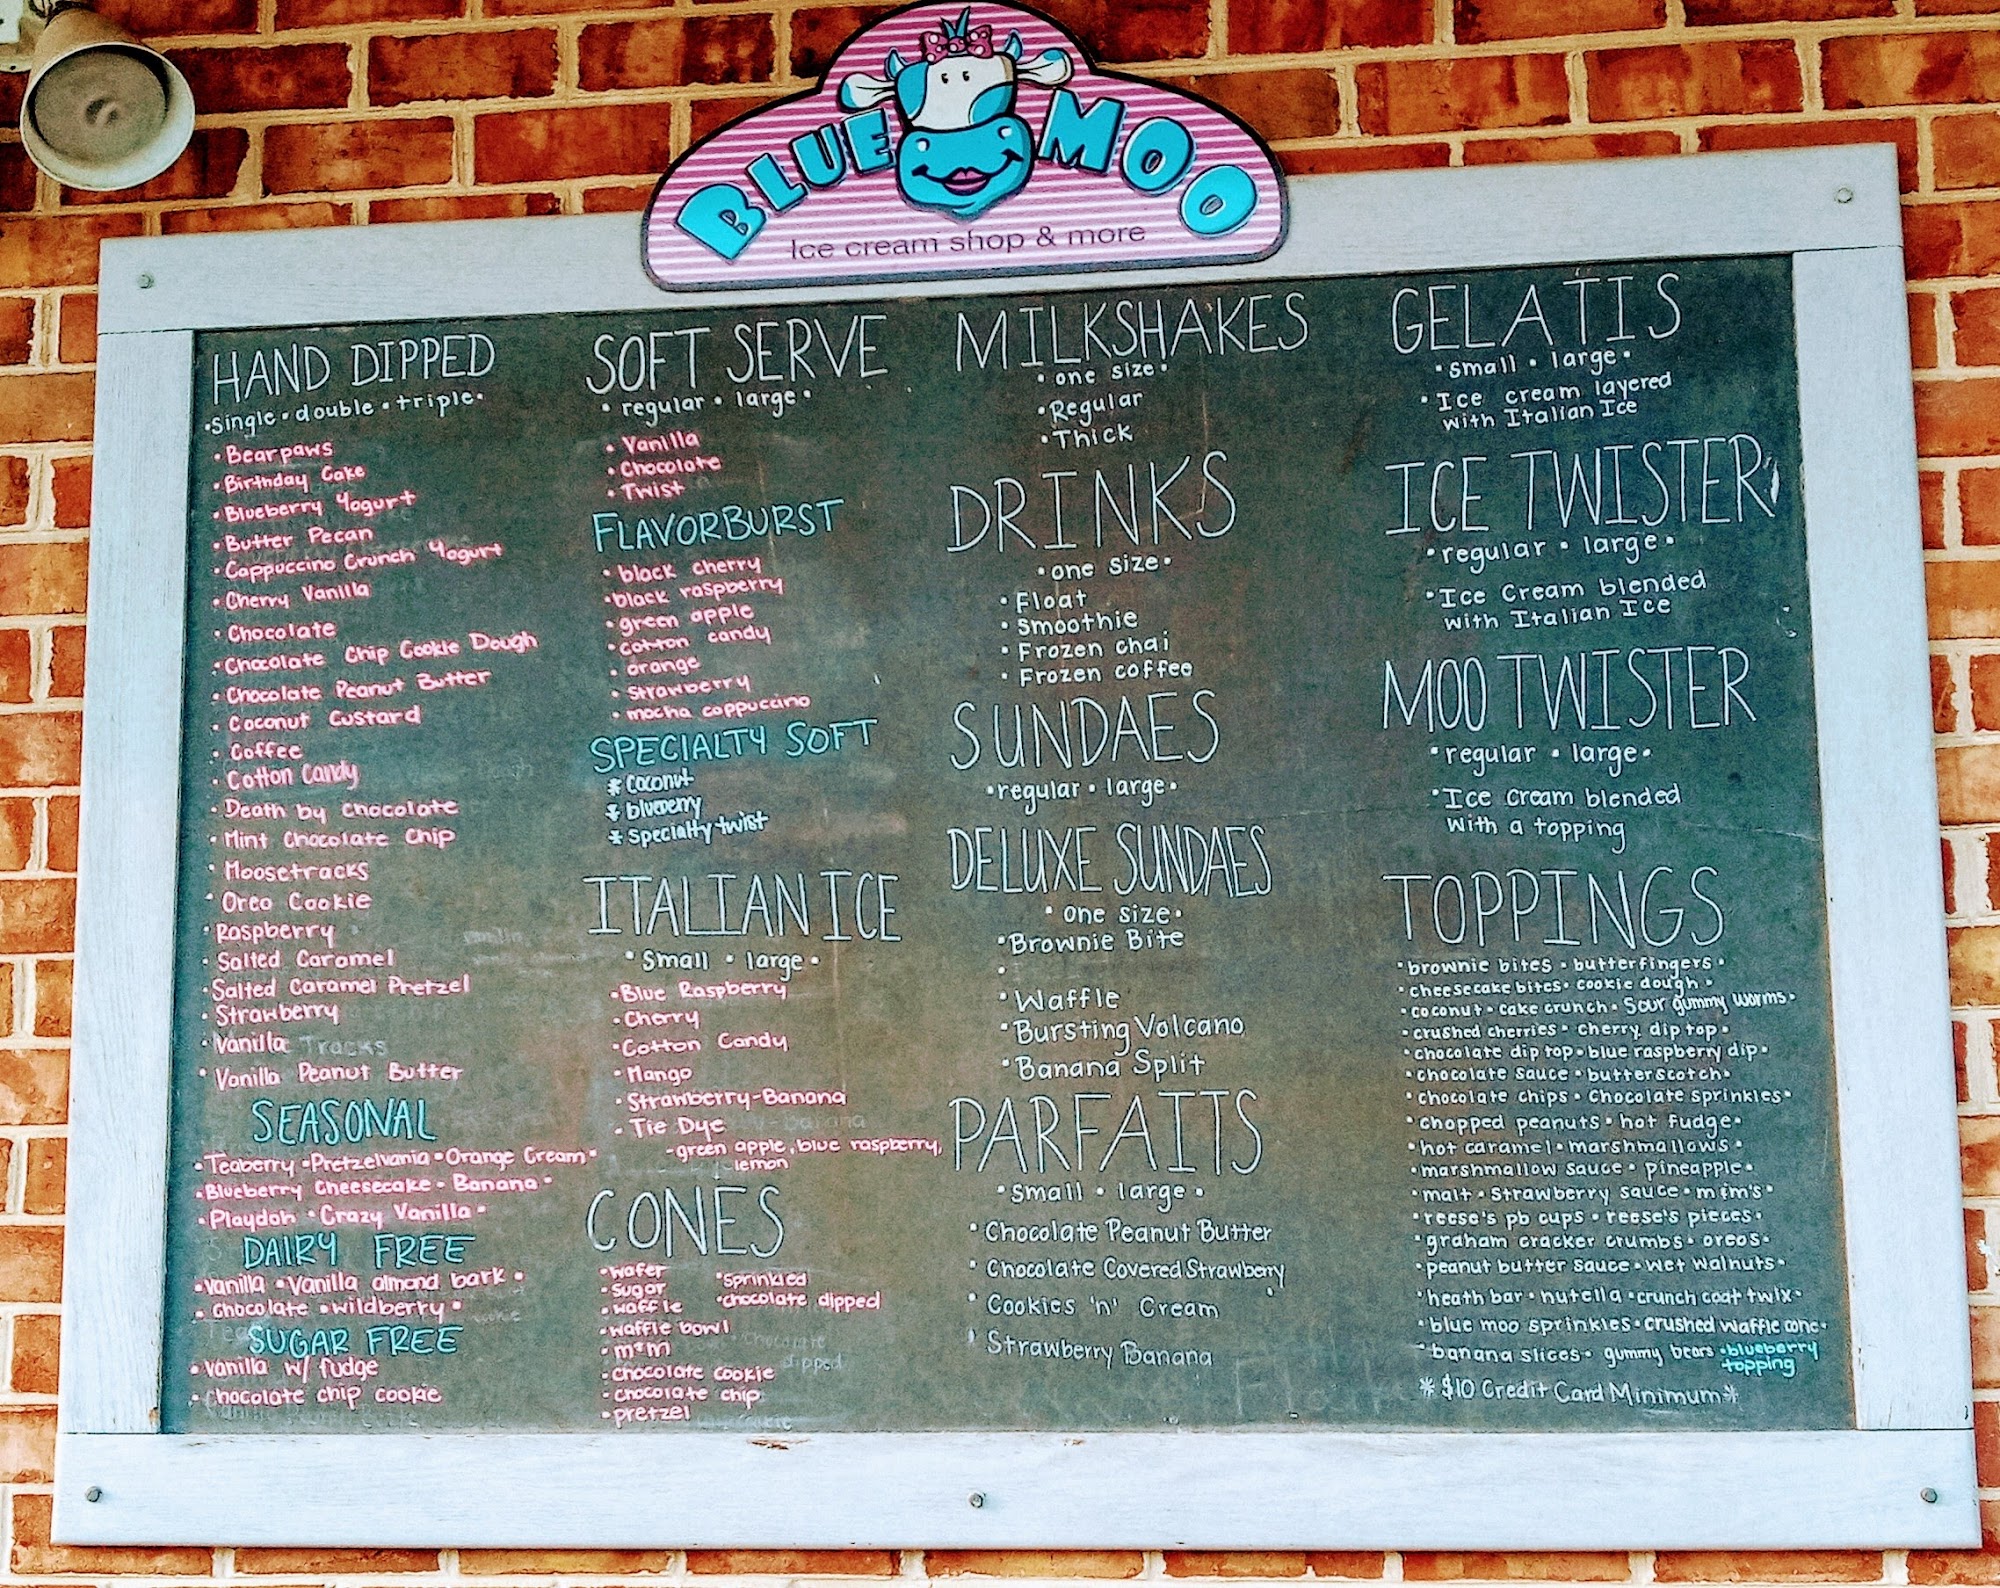 BLUE MOO
Ice cream shop & more
HAND DIPPED
•single•double•triple•
•Bearpaws
•Birthday Cake
•Blueberry Yogurt
•Butter Pecan
•Cappuccino Crunch Yogurt
•Cherry Vanilla
•Chocolate
•Chocolate Chip Cookie Dough
•Chocolate Peanut Butter
•Coconut Custard
•Coffee
•Cotton Candy
•Death by Chocolate
•Mint Chocolate Chip
•Moosetracks
•Oreo Cookie
•Raspberry
•Salted Caramel
•Salted Caramel Pretzel
•Strawberry
•Vanilla Tracks
•Vanilla Peanut Butter
SEASONAL
•Teaberry •Pretzelvania•Orange Cream•
•Blueberry Cheesecake•Banana•
•Playdoh •Crazy Vanilla•
DAIRY FREE
•Vanilla •Vanilla almond bark •
•Chocolate •wildberry•
SUGAR FREE
•Vanilla w/ fudge
•Chocolate chip cookie
SOFT SERVE
• regular • large •
• Vanilla
• Chocolate
• Twist
FLAVORBURST
•black cherry
•black raspberry
•green apple
•cotton candy
•orange
•strawberry
•mocha cappuccino
SPECIALTY SOFT
*coconut
*blueberry
*specialty twist
ITALIAN ICE
•Small • large •
•Blue Raspberry
•Cherry
•Cotton Candy
•Mango
•Strawberry-Banana
•Tie Dye
-green apple, blue raspberry,
lemon
CONES
•wafer
•Sugar
•waffle
•waffle bowl
•m&m
•chocolate cookie
•chocolate chip
•pretzel
•sprinkled
•chocolate dipped
MILKSHAKES
• one size •
•Regular
•Thick
DRINKS
•one size•
•Float
•Smoothie
•Frozen chai
•Frozen coffee
SUNDAES
•regular • large•
DELUXE SUNDAES
• one size•
•Brownie Bite
•
•Waffle
•Bursting Volcano
•Banana Split
PARFAITS
•Small • large •
•Chocolate Peanut Butter
•Chocolate Covered Strawberry
•Cookies 'n' Cream
•Strawberry Banana
GELATIS
•Small • large•
•Ice cream layered
with Italian Ice
ICE TWISTER
•regular • large•
•Ice Cream blended
with Italian Ice
MOO TWISTER
•regular • large•
•Ice cream blended
with a topping
TOPPINGS
•brownie bites • butterfingers •
•cheesecake bites• cookie dough •
•coconut • cake crunch • Sour gummy worms•
•crushed cherries• cherry dip top•
•chocolate dip top•blue raspberry dip•
•chocolate sauce•butterscotch•
•chocolate chips• Chocolate sprinkles•
•chopped peanuts•hot fudge•
•hot caramel•marshmallows •
•marshmallow sauce• pineapple•
•malt•Strawberry sauce•m&m's•
•reese's pb cups • reese's pieces•
•graham cracker crumbs• oreos•
•peanut butter sauce•wet walnuts•
•heath bar•nutella•crunch coat twix•
•blue moo sprinkles•crushed waffle cone•
•banana slices• gummy bears •blueberry
topping
*$10 Credit Card Minimum*